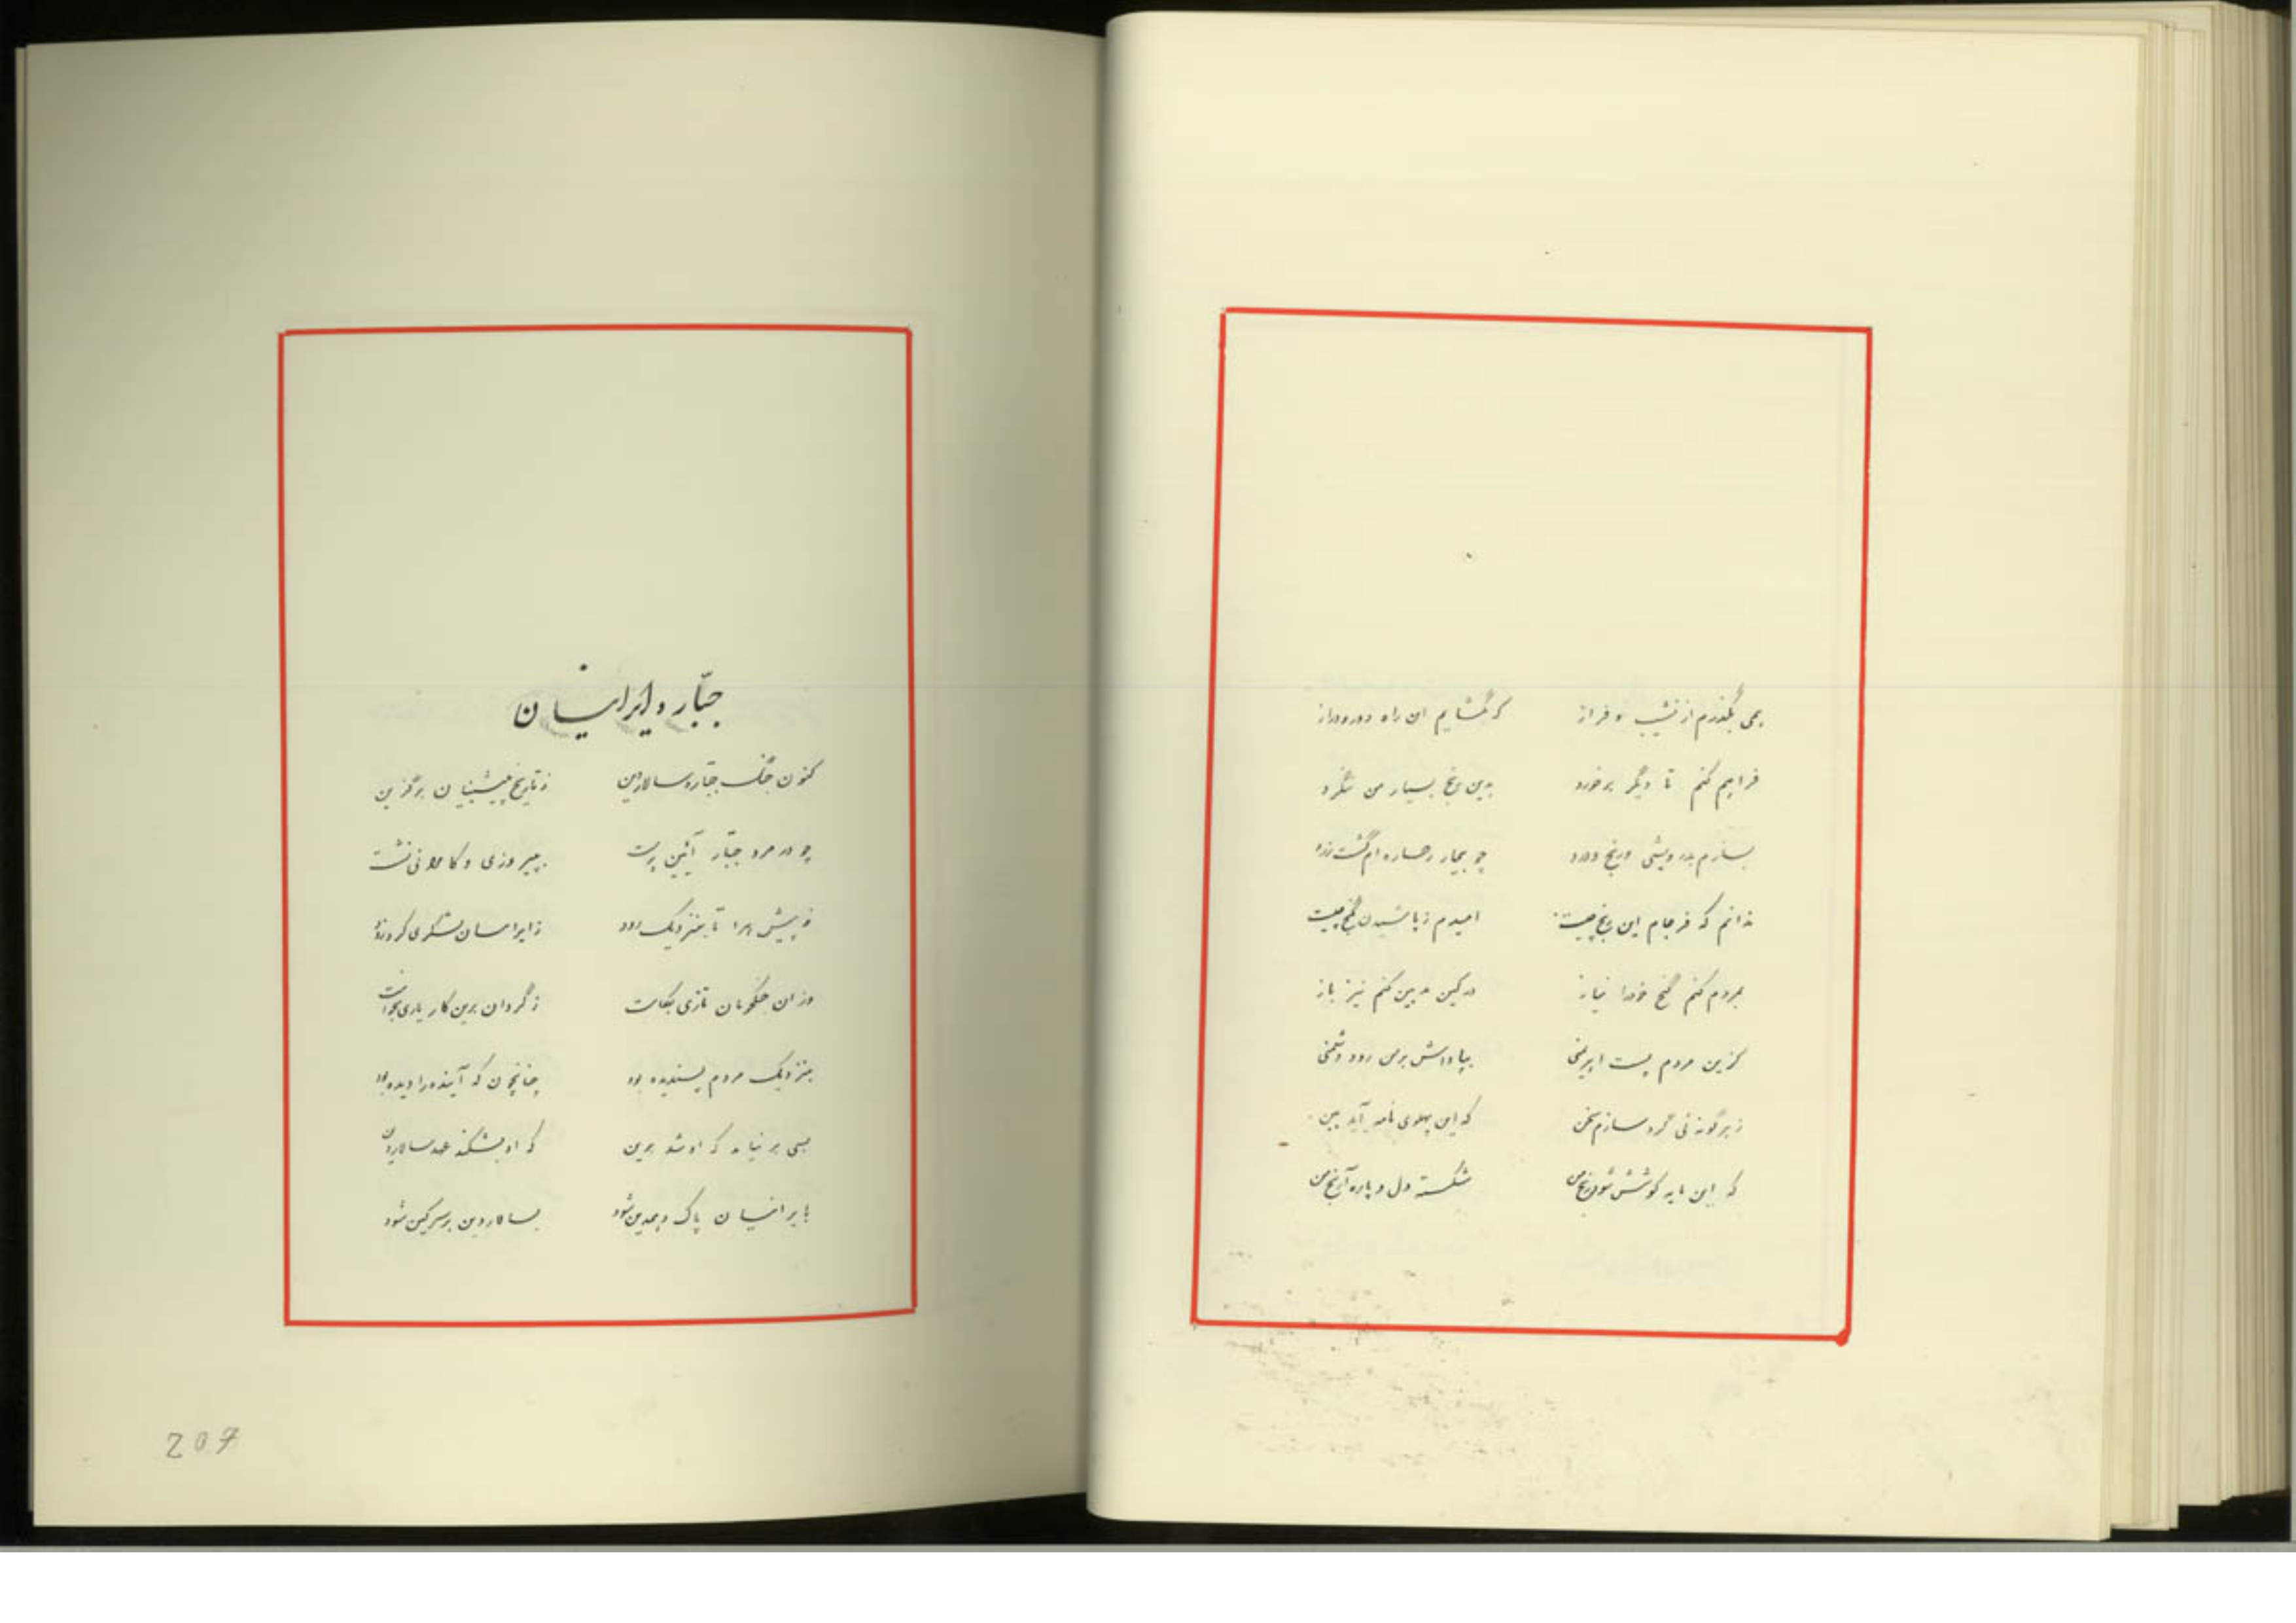 همی بگذرم از نشیب و فراز که بگشایم این راه دور و دراز
فراهم کنم تا دیگر برخورد بدین رنج بسیار من ننگرد
بسازم بدرویشی و رنج و درد چو بیمار رخساره ام گشت زرد
ندانم که فرجام این رنج چیست امیدم ز پاشیدن گنج چیست
بمردم کنم گنج خود را نیاز در کین بدین کنم نیز باز
کزین مردم پست اهریمنی بپاداش برمن رود دشمنی
ز هرگونه ئی گرد سازم سخن که این پهلوی نامه آید ببن
که این مایه کوشش شود رنج من شکسته دل و پاره آرنج من
جبّار و ایرانیان
کنون جنگ جبّار و سالار دین ز تاریخ پیشینیان برگزین
چو در مرد جبّار آئین پرست بپیروزی و کامرانی نشست
پیش مرا تا بنزدیک رود ز ایرانیان لشکری کرد زود
وزان جنگجویان تازی بکاست ز گردان برین کار یاری بخواست
بنزدیک مردم پسندیده بود چنانچون که آینده را دیده بود
بسی بر نیامد که او شد برین که او بشکند عهد سالار دین
با ایرانیان پاک و همدین شود بسالار دین بر سر کین شود
207